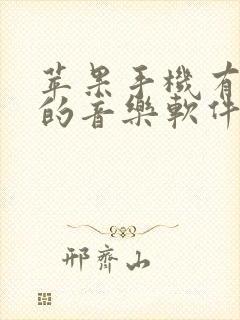 苹果手機有
的音樂軟件
邢齊山